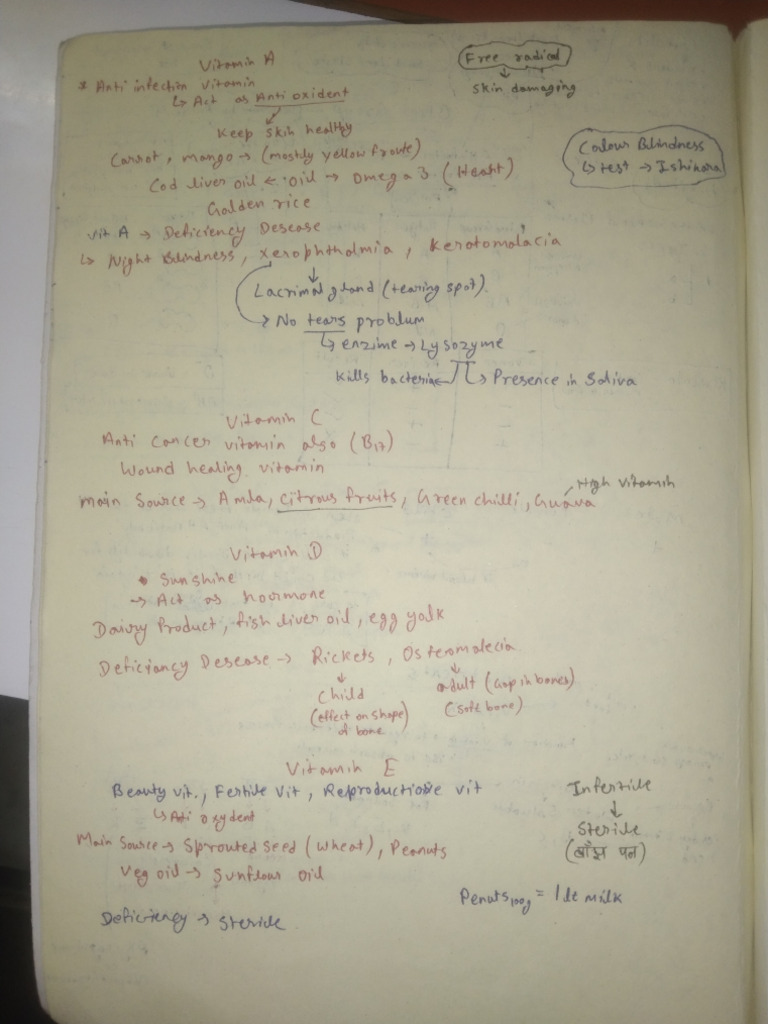 Vitamin A
* Anti infection vitamin
↳ Act as Anti oxident
Keep skin healthy
Free radical
↓
skin damaging
Carrot, mango → (mostly yellow froute)
Cod liver oil ← oil → Omega 3 (Heart)
Golden rice
Colour Blindness
↳ test → Ishihara
Vit A → Deficiency Desease
↳ Night Blindness, xerophthalmia, Kerotomalacia
↓
Lacrimal gland (tearing spot)
→ No tears problum
↳ enzime → Lysozyme
Kills bacteria ← ↳ Presence in Saliva
Vitamin C
Anti Cancer vitamin also (B17)
Wound healing vitamin
High vitamin
Main Source → Amla, citrous fruits, Green chilli, Guava
Vitamin D
• Sunshine
→ Act as hormone
Dairy Product, fish liver oil, egg yolk
Deficiancy Desease → Rickets, Osteomalecia
↓ ↓
Child adult (Gap in bones)
(effect on shape of bone (soft bone)
Vitamin E
Beauty vit., Fertile vit, Reproductiove vit
↳ Anti oxydent
Main Source → Sprouted seed (wheat), Peanuts
Veg oil → Sunflour oil
Infertile
↓
Sterile
(बाँझ पन)
Penats 100g = 1 lt milk
Deficiency → Sterile